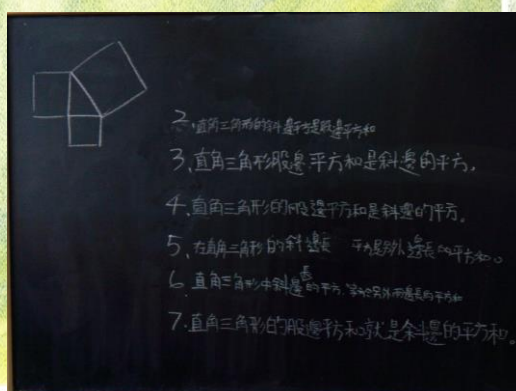 2、直角三角形的斜邊平方是股邊平方和
3、直角三角形股邊平方和是斜邊的平方,
4、直角三角形的股邊平方和是斜邊的平方。
5、在直角三角形的斜邊長 平方是另外邊長的平方和。
6、直角三角形中斜邊長的平方,等於另外兩邊長的平方和
7、直角三角形的股邊平方和就是斜邊的平方和。